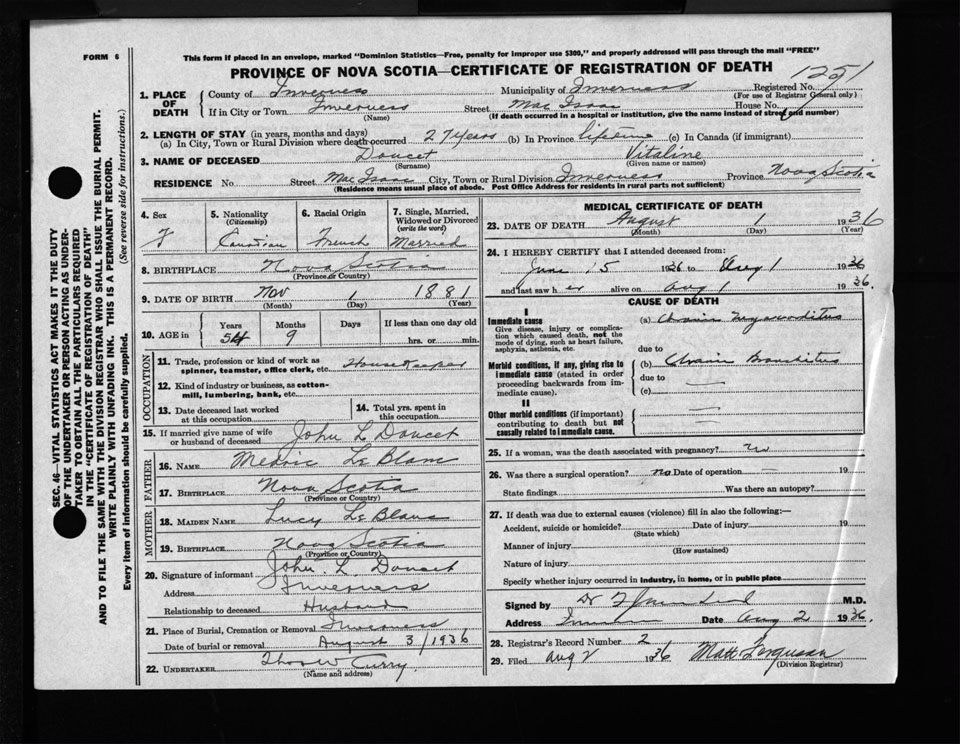 FORM 6
This form if placed in an envelope, marked "Dominion Statistics—Free, penalty for improper use $300," and properly addressed will pass through the mail "FREE"
PROVINCE OF NOVA SCOTIA—CERTIFICATE OF REGISTRATION OF DEATH
1251
1. PLACE OF DEATH
County of Inverness Municipality of Inverness Registered No.
(For use of Registrar General only)
If in City or Town Inverness Street Mac Isaac House No.
(Name) (If death occurred in a hospital or institution, give the name instead of street and number)
2. LENGTH OF STAY (in years, months and days)
(a) In City, Town or Rural Division where death occurred 27 years (b) In Province lifetime (c) In Canada (if immigrant)
3. NAME OF DECEASED Doucet Vitaline
(Surname) (Given name or names)
RESIDENCE No. Street Mac Isaac City, Town or Rural Division Inverness Province Nova Scotia
(Residence means usual place of abode. Post Office Address for residents in rural parts not sufficient)
SEC. 46—VITAL STATISTICS ACT MAKES IT THE DUTY
OF THE UNDERTAKER OR PERSON ACTING AS UNDER-
TAKER TO OBTAIN ALL THE PARTICULARS REQUIRED
IN THE "CERTIFICATE OF REGISTRATION OF DEATH"
AND TO FILE THE SAME WITH THE DIVISION REGISTRAR WHO SHALL ISSUE THE BURIAL PERMIT.
WRITE PLAINLY WITH UNFADING INK. THIS IS A PERMANENT RECORD.
Every item of information should be carefully supplied. (See reverse side for instructions.)
4. Sex F
5. Nationality (Citizenship) Canadian
6. Racial Origin French
7. Single, Married, Widowed or Divorced (write the word) Married
8. BIRTHPLACE Nova Scotia
(Province or Country)
9. DATE OF BIRTH Nov 1 1881
(Month) (Day) (Year)
10. AGE in Years Months Days If less than one day old
54 9 hrs. or min.
OCCUPATION
11. Trade, profession or kind of work as spinner, teamster, office clerk, etc. Housekeeper
12. Kind of industry or business, as cotton-mill, lumbering, bank, etc.
13. Date deceased last worked at this occupation
14. Total yrs. spent in this occupation
15. If married give name of wife or husband of deceased John L Doucet
FATHER
16. NAME Medric Le Blanc
17. BIRTHPLACE Nova Scotia
(Province or Country)
MOTHER
18. MAIDEN NAME Lucy Le Blanc
19. BIRTHPLACE Nova Scotia
(Province or Country)
20. Signature of informant John L. Doucet
Address Inverness
Relationship to deceased Husband
21. Place of Burial, Cremation or Removal Inverness
Date of burial or removal August 3/1936
22. UNDERTAKER Thos W Curry
(Name and address)
MEDICAL CERTIFICATE OF DEATH
23. DATE OF DEATH August 1 1936
(Month) (Day) (Year)
24. I HEREBY CERTIFY that I attended deceased from:
June 15 1936 to Aug 1 1936
and last saw her alive on Aug 1 1936.
CAUSE OF DEATH
I
Immediate cause
Give disease, injury or complication which caused death, not the mode of dying, such as heart failure, asphyxia, asthenia, etc.
(a) Chronic Myocarditis
due to
Morbid conditions, if any, giving rise to immediate cause (stated in order proceeding backwards from immediate cause).
(b) Chronic Bronchitis
due to
(c)
II
Other morbid conditions (if important) contributing to death but not causally related to immediate cause.
25. If a woman, was the death associated with pregnancy? no
26. Was there a surgical operation? no Date of operation — 19
State findings Was there an autopsy?
27. If death was due to external causes (violence) fill in also the following:—
Accident, suicide or homicide? Date of injury 19
(State which)
Manner of injury
(How sustained)
Nature of injury
Specify whether injury occurred in industry, in home, or in public place
Signed by Dr M.D.
Address Date Aug 2 1936.
28. Registrar's Record Number 2
29. Filed Aug 2 1936 Matt Ferguson
(Division Registrar)